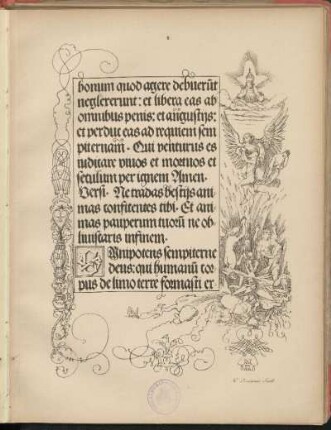 bonum quod agere debuerūt
neglexerunt: et libera eas ab
omnibus penis: et angustijs:
et perduc eas ad requiem sem
piternam. Qui venturus es
iudicare viuos et mortuos et
seculum per ignem Amen.
Versi. Ne tradas bestijs ani
mas confitentes tibi. Et ani
mas pauperum tuorū ne ob
liuiscaris in finem.
Omnipotens sempiterne
deus: qui humanū cor
pus de limo terre formasti et